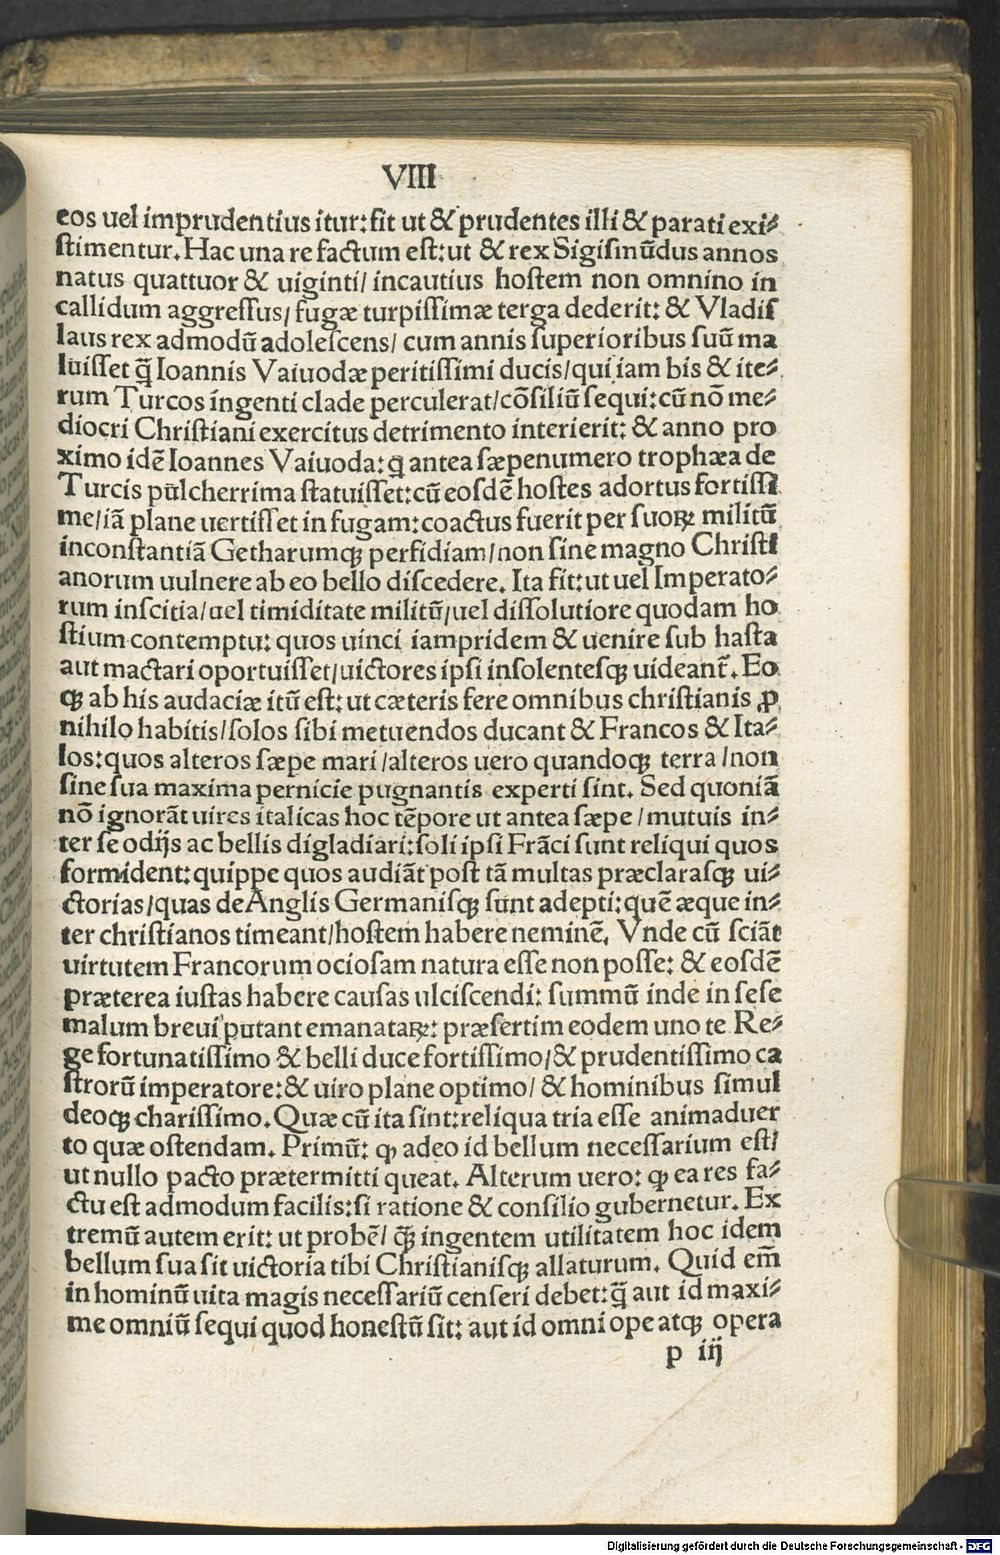 VIII
eos uel imprudentius itur:fit ut & prudentes illi & parati exi⸗
ſtimentur. Hac una re factum eſt:ut & rex Sigiſmũdus annos
natus quattuor & uiginti/ incautius hoſtem non omnino in
callidum aggreſſus/ fugæ turpiſſimæ terga dederit: & Vladiſ
laus rex admodũ adoleſcens/ cum annis ſuperioribus ſuũ ma
luiſſet q̃ Ioannis Vaiuodæ peritiſſimi ducis/ qui iam bis & ite⸗
rum Turcos ingenti clade perculerat/cõſiliũ ſequi:cũ nõ me⸗
diocri Chriſtiani exercitus detrimento interierit: & anno pro
ximo idẽ Ioannes Vaiuoda: q̃ antea ſæpenumero trophæa de
Turcis pulcherrima ſtatuiſſet:cũ eoſdẽ hoſtes adortus fortiſſi
me/iã plane uertiſſet in fugam:coactus fuerit per ſuoꝝ militũ
inconſtantiã Getharumqꝫ perfidiam/non ſine magno Chriſti
anorum uulnere ab eo bello diſcedere. Ita fit:ut uel Imperato⸗
rum inſcitia/uel timiditate militũ/uel diſſolutiore quodam ho
ſtium contemptu: quos uinci iampridem & uenire ſub haſta
aut mactari oportuiſſet/uictores ipſi inſolenteſqꝫ uideant᷑. Eo
qꝫ ab his audaciæ itũ eſt:ut cæteris fere omnibus chriſtianis ꝓ
nihilo habitis/ſolos ſibi metuendos ducant & Francos & Ita⸗
los:quos alteros ſæpe mari/alteros uero quandoqꝫ terra/non
ſine ſua maxima pernicie pugnantis experti ſint. Sed quoniã
nõ ignorãt uires italicas hoc tẽpore ut antea ſæpe/mutuis in⸗
ter ſe odijs ac bellis digladiari:ſoli ipſi Frãci ſunt reliqui quos
formident:quippe quos audiãt poſt tã multas præclaraſqꝫ ui⸗
ctorias/quas de Anglis Germaniſqꝫ ſunt adepti:quẽ æque in⸗
ter chriſtianos timeant/hoſtem habere neminẽ. Vnde cũ ſciãt
uirtutem Francorum ocioſam natura eſſe non poſſe: & eoſdẽ
præterea iuſtas habere cauſas ulciſcendi: ſummũ inde in ſeſe
malum breui putant emanataꝝ: præſertim eodem uno te Re⸗
ge fortunatiſſimo & belli duce fortiſſimo/& prudentiſſimo ca
ſtrorũ imperatore:& uiro plane optimo/ & hominibus ſimul
deoqꝫ chariſſimo. Quæ cũ ita ſint:reliqua tria eſſe animaduer
to quæ oſtendam. Primũ: ꝙ adeo id bellum neceſſarium eſt/
ut nullo pacto prætermitti queat. Alterum uero: ꝙ ea res fa⸗
ctu eſt admodum facilis:ſi ratione & conſilio gubernetur. Ex
tremũ autem erit: ut probẽ/ ꝙ̃ ingentem utilitatem hoc idem
bellum ſua ſit uictoria tibi Chriſtianiſqꝫ allaturum. Quid em̃
in hominũ uita magis neceſſariũ cenſeri debet:q̃ aut id maxi⸗
me omniũ ſequi quod honeſtũ ſit: aut id omni ope atqꝫ opera
p iij
Digitalisierung gefördert durch die Deutsche Forschungsgemeinschaft - DFG